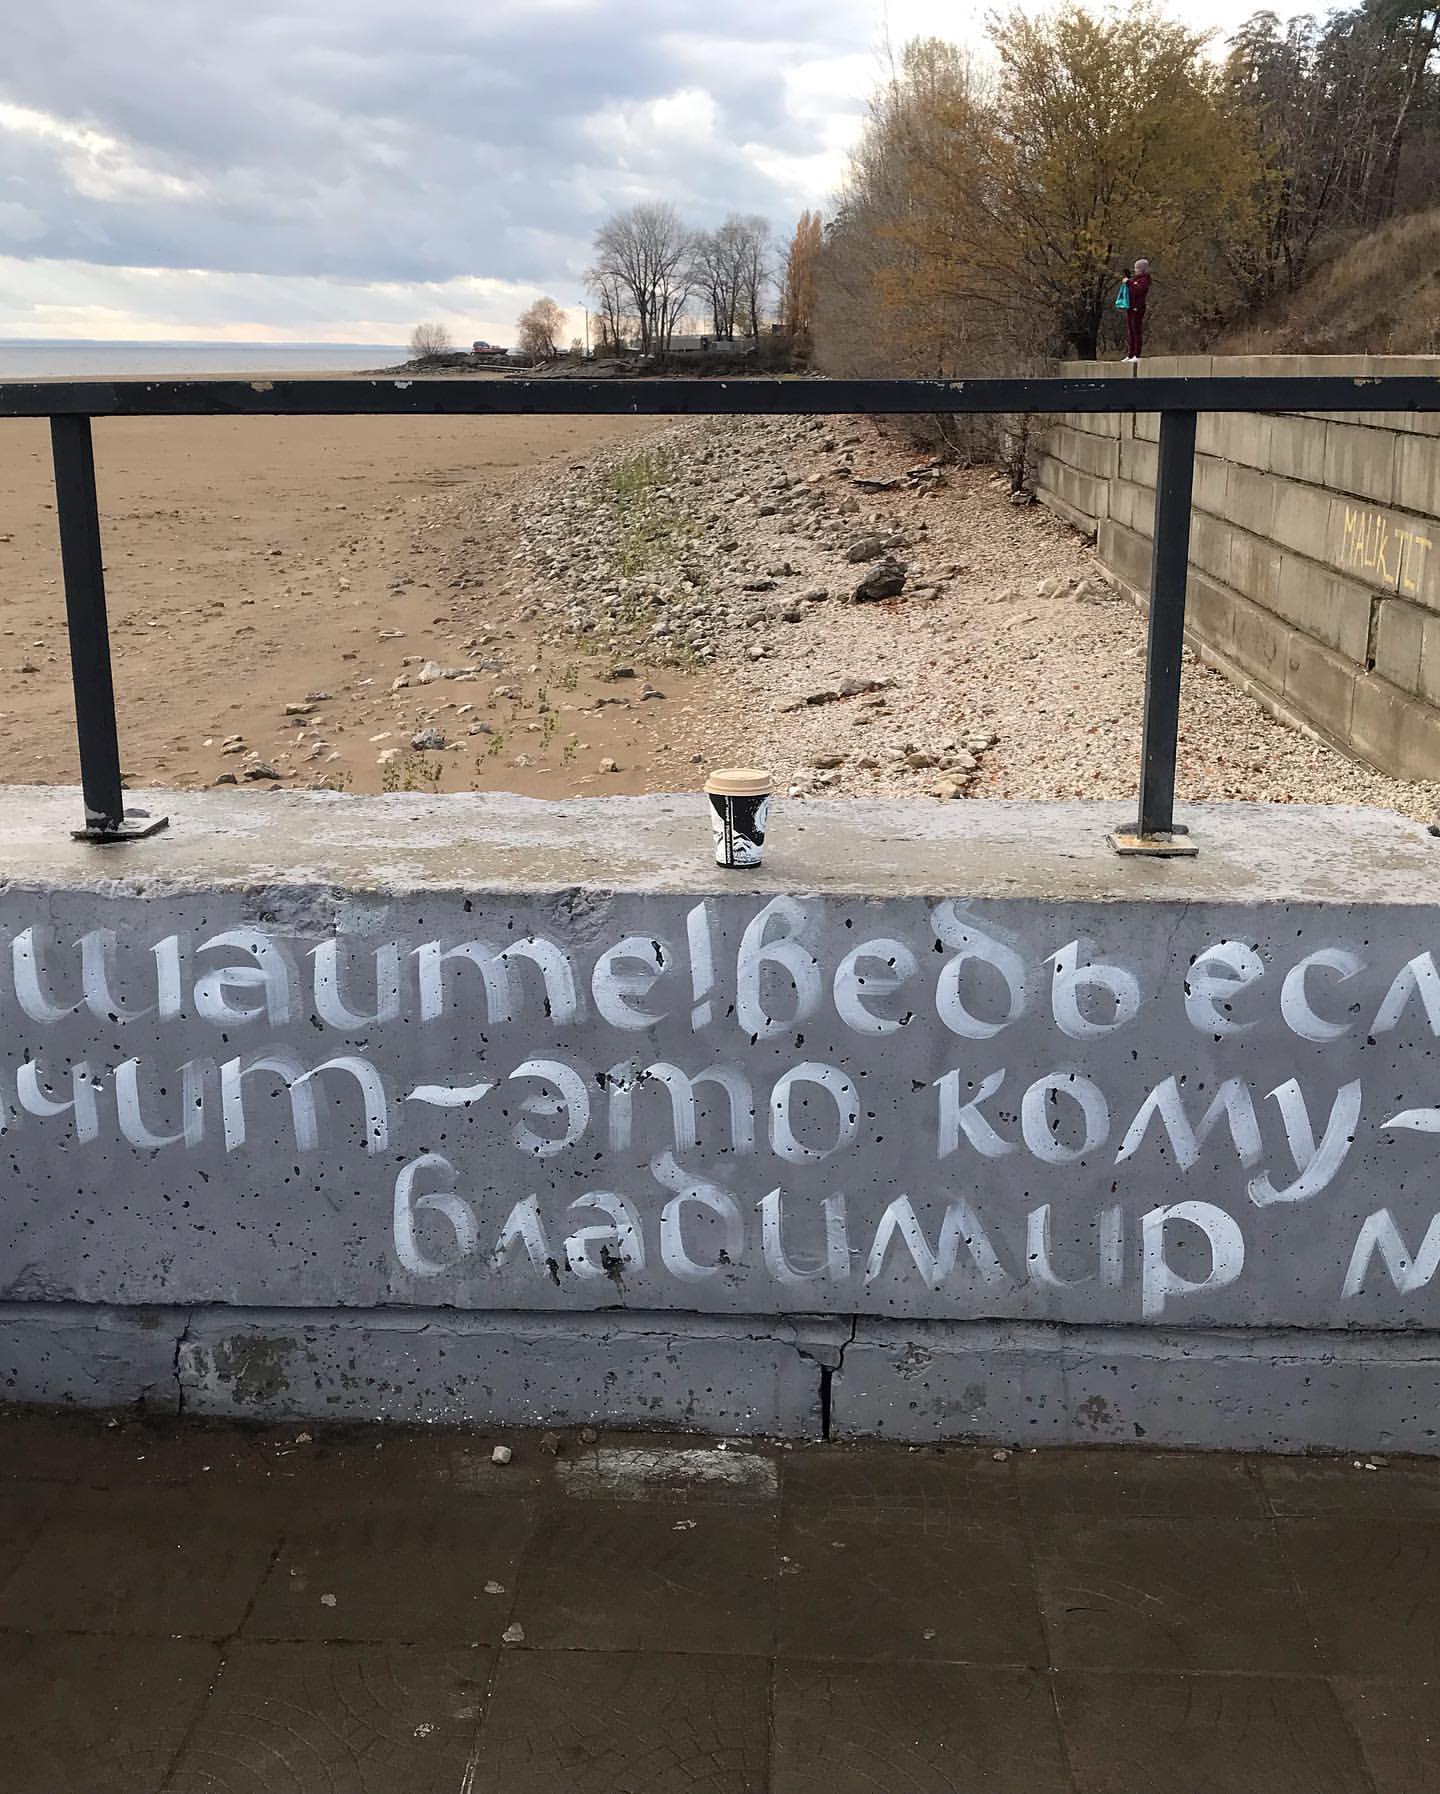 шайте! ведь есл
чит-это кому-
владимир м